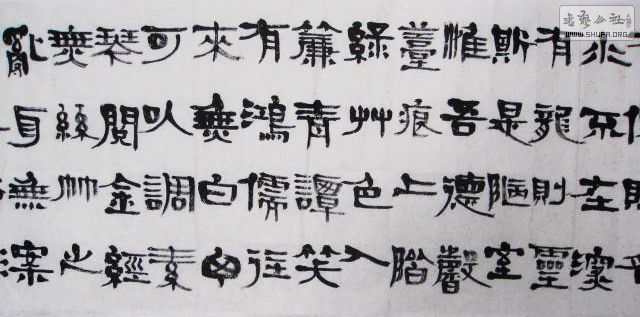 水不在深
有龍則靈
斯是陋室
惟吾德馨
薹痕上階
綠艸色入
簾青譚笑
有鴻儒往
來無白丁
可以調素
琴閱金經
無絲竹之
亂耳無案
书艺公社
WWW.SHUFA.ORG